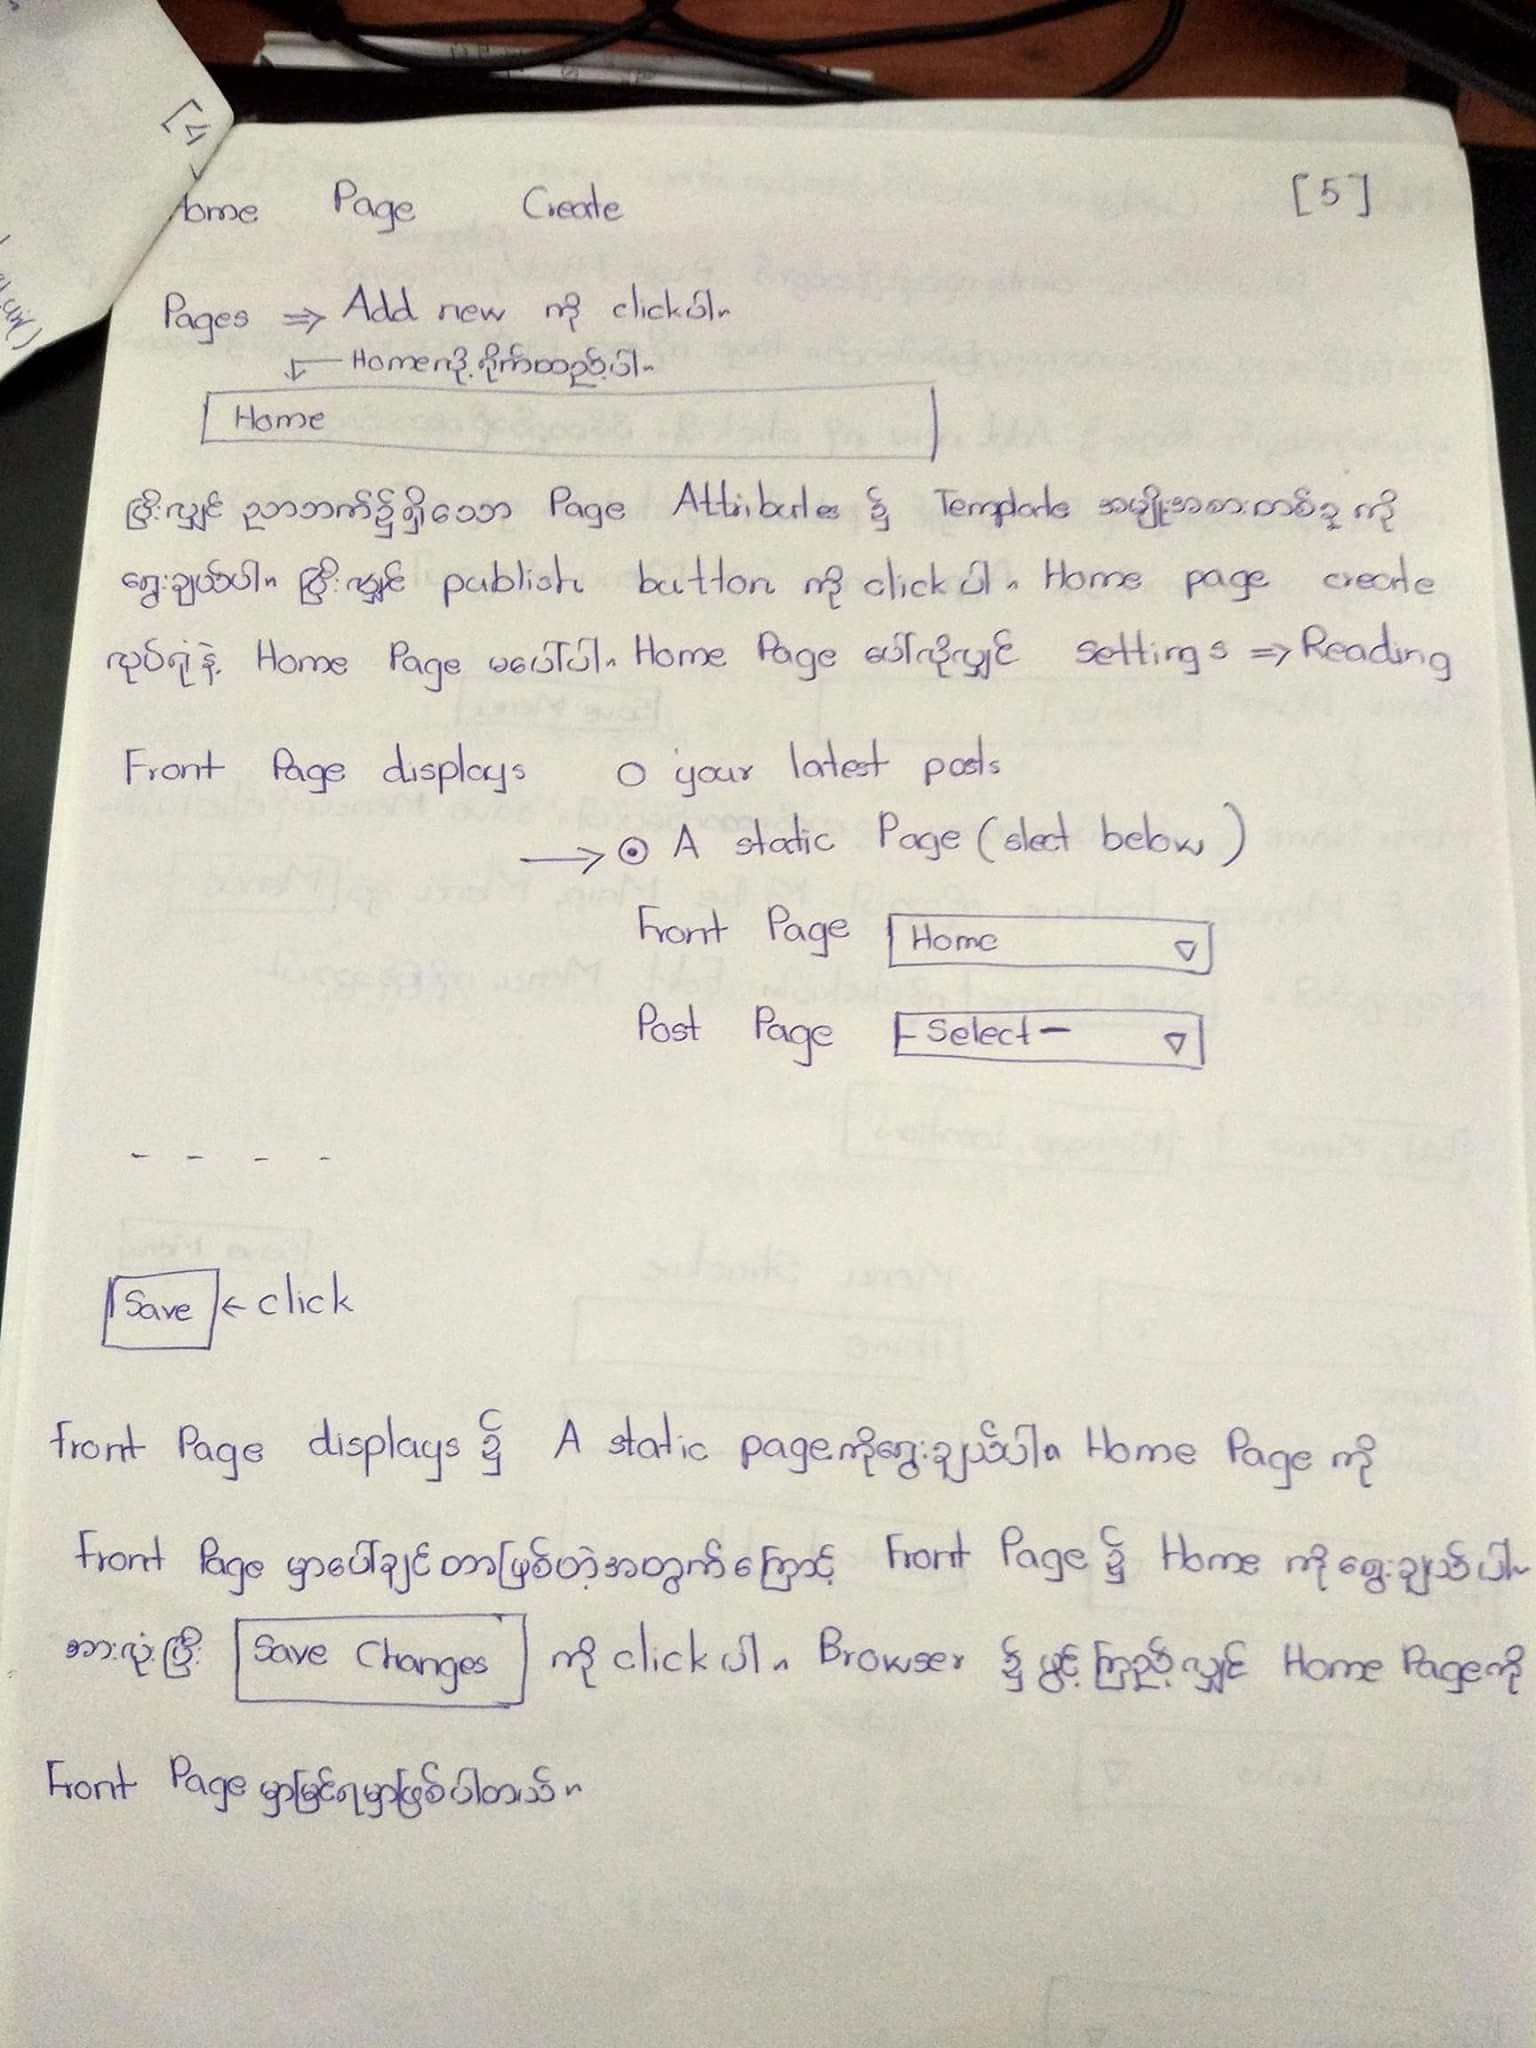 Home Page Create [5]
Pages ⇒ Add new ကို clickပါ။
Homeလို့ ရိုက်ထည့်ပါ။
Home
ပြီးလျှင် ညာဘက်၌ရှိသော Page Attributes ၌ Template အမျိုးအစားတစ်ခု ကို
ရွေးချယ်ပါ။ ပြီးလျှင် publish button ကို click ပါ။ Home page create
လုပ်ရုံနဲ့ Home Page မပေါ်ပါ။ Home Page ပေါ်လိုလျှင် settings ⇒ Reading
Front Page displays ○ your latest posts
→ ⊙ A static Page (slect below)
Front Page Home ▽
Post Page - Select - ▽
- - - -
Save ← click
Front Page displays ၌ A static pageကိုရွေးချယ်ပါ။ Home Page ကို
Front Page မှာပေါ်ချင်တာဖြစ်တဲ့အတွက်ကြောင့် Front Page ၌ Home ကိုရွေးချယ်ပါ။
အားလုံးပြီး Save Changes ကို click ပါ။ Browser ၌ ဖွင့်ကြည့်လျှင် Home Pageကို
Front Page မှာမြင်ရမှာဖြစ်ပါတယ်။